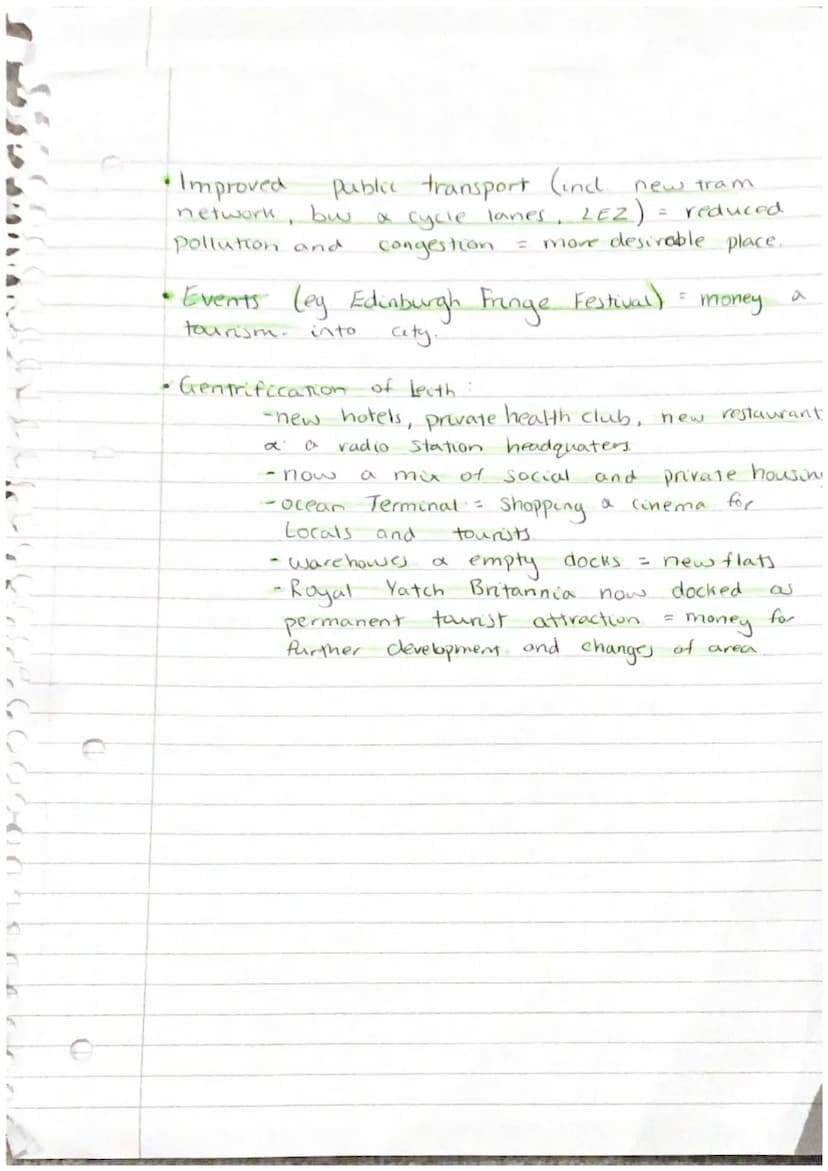 • Improved public transport (incl new tram
network, bus & cycle lanes, LEZ) = reduced
pollution and congestion = more desirable place.
• Events (eg Edinburgh Fringe Festival) = money &
tourism into city.
• Gentrification of Leith:
- new hotels, private health club, new restaurant
& a radio station headquaters
- now a mix of social and private housin
- ocean Terminal = shopping & cinema for
locals and tourists
- warehouses & empty docks = new flats
- Royal Yatch Britannia now docked as
permanent tourist attraction = money for
further development and changes of area